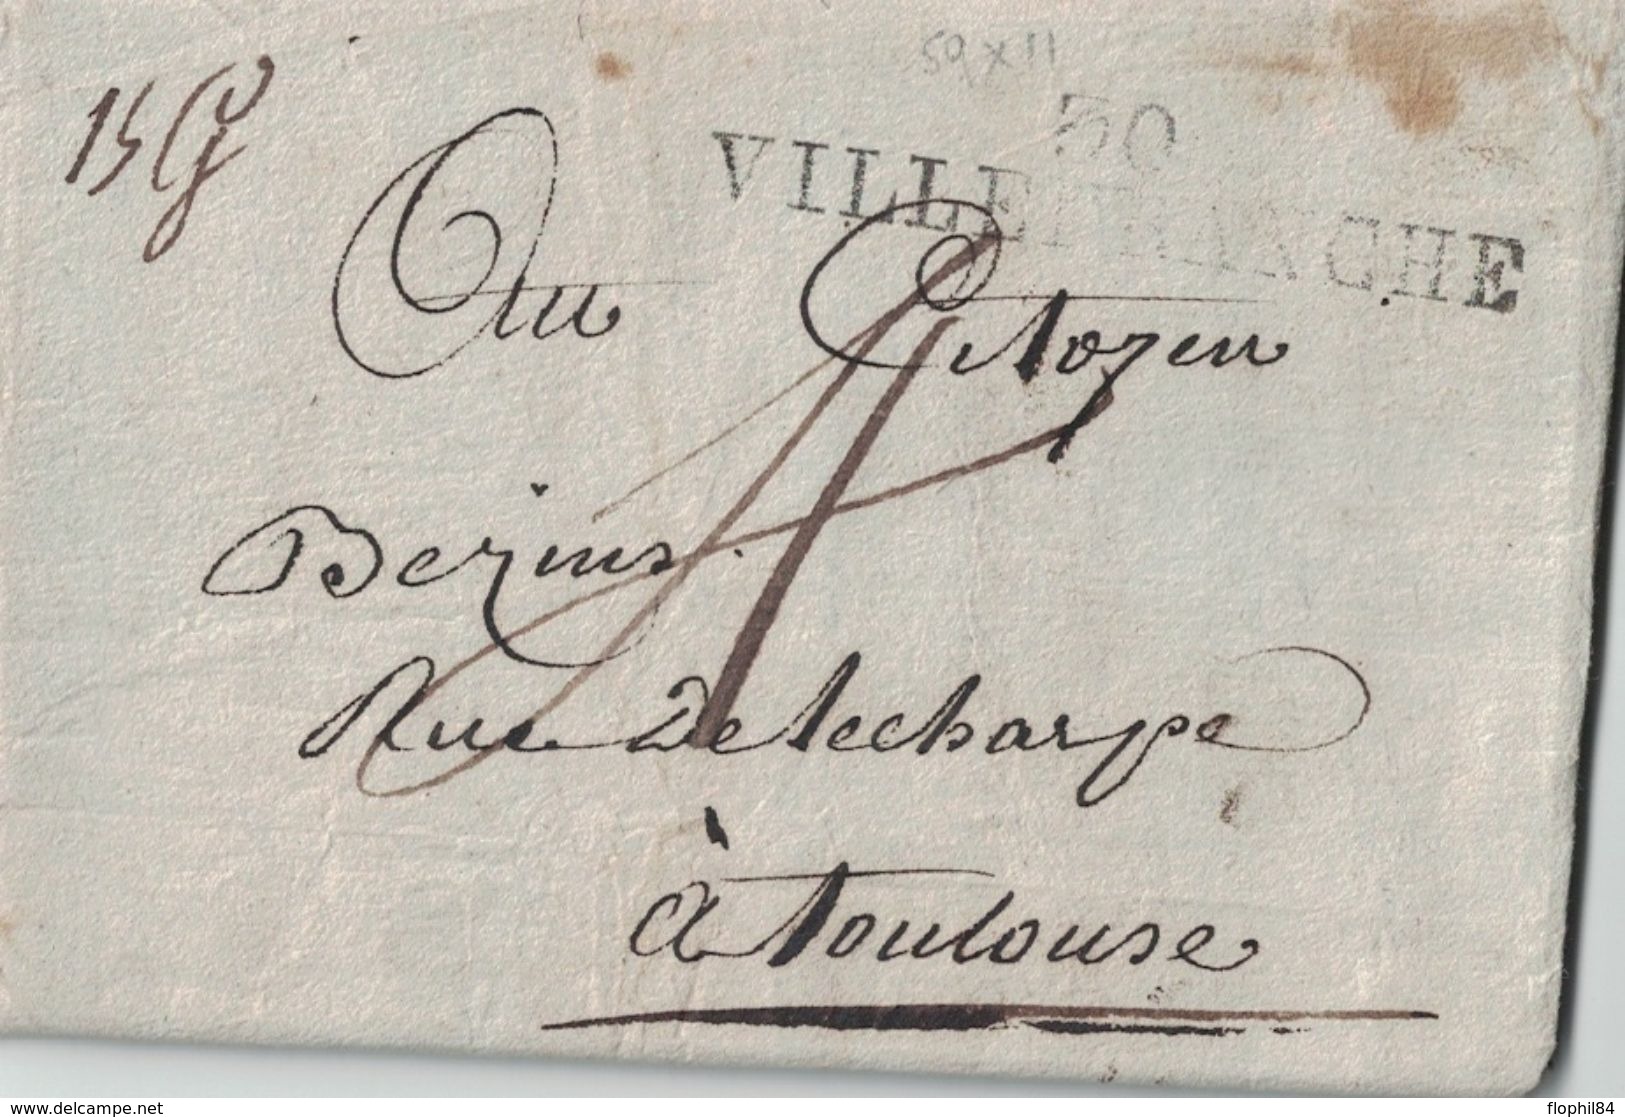 59 x 11
15 G
30
VILLEFRANCHE
Au Citoyen
Bezins.
Rue De lecharpe
à toulouse
www.delcampe.net
flophil84